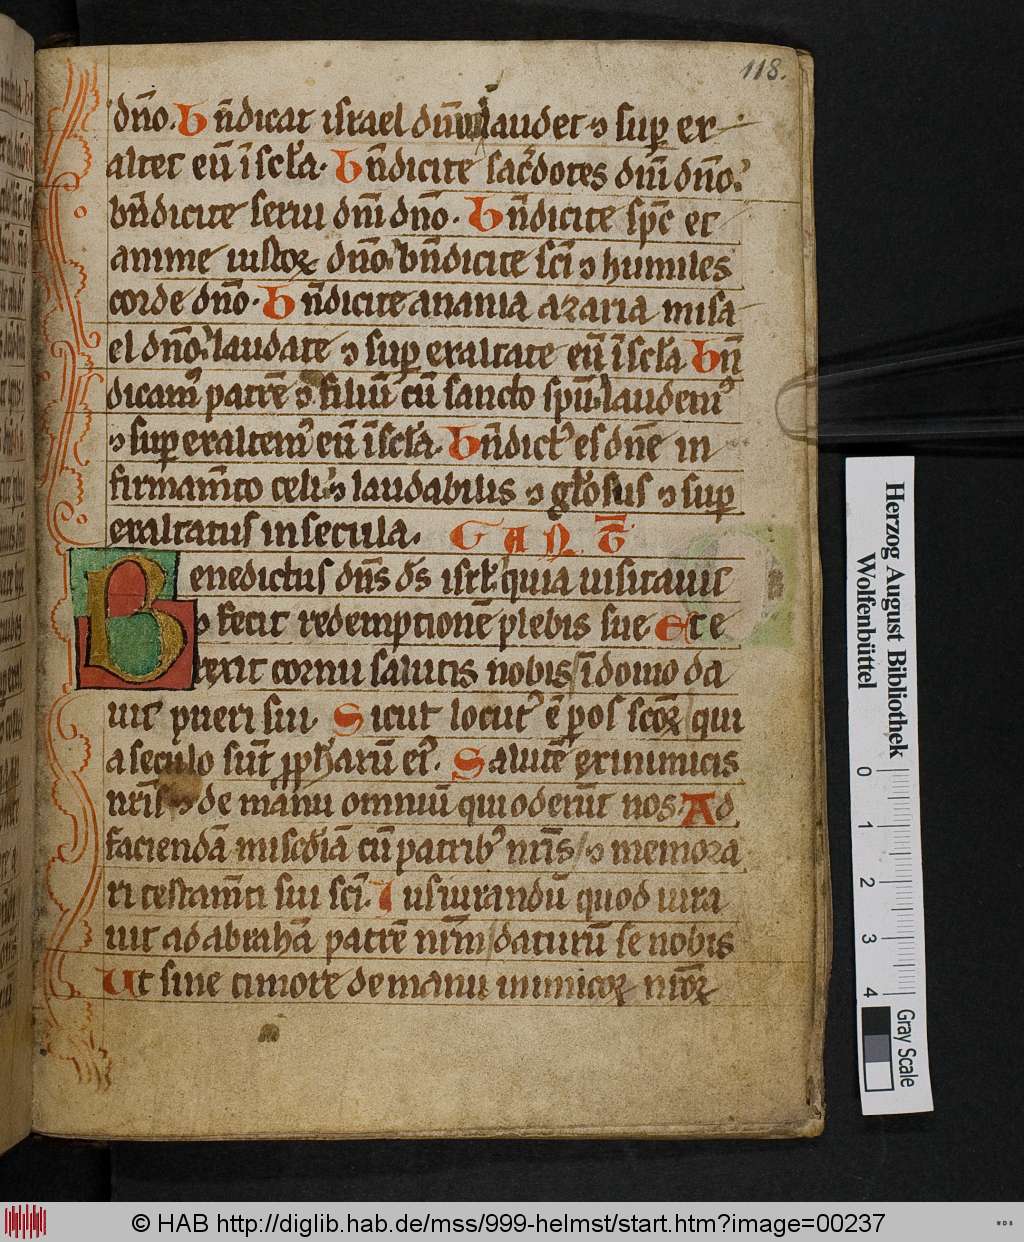 118.
dn̄o. bn̄dicat israel dn̄m laudet ⁊ sup ex
altet eū ī scl̄a. bn̄dicite sac̄dotes dn̄i dn̄o.
bn̄dicite serui dn̄i dn̄o. bn̄dicite sp̄c et
anime iustoꝝ dn̄o. bn̄dicite sc̄i ⁊ humiles
corde dn̄o. bn̄dicite anania azaria misa
el dn̄o. laudate ⁊ sup exaltate eū ī scl̄a bn̄
dicamꝰ patrē ⁊ filiū cū sancto sp̄u laudemꝰ
⁊ sup exaltemꝰ eū ī scl̄a. bn̄dictꝰ es dn̄e in
firmam̄to celi ⁊ laudabilis ⁊ gl̄osus ⁊ sup
exaltatus in secula. CANT̄
Benedictus dn̄s d̄s isrl̄ quia uisitauit
⁊ fecit redemptionē plebis sue Et e
rexit cornu salutis nobis ī domo da
uit pueri sui. Sicut locutꝰ ē p os sc̄oꝝ qui
a seculo sūt pph̄arū eiꝰ. Salutē ex inimicis
nr̄is ⁊ de manu omniū qui oderūt nos. Ad
faciendā misc̄diā cū patribꝰ nr̄is ⁊ memora
ri testam̄ti sui sc̄i. Iusiurandū quod iura
uit ad abrahā patrē nr̄m daturū se nobis
Ut sine timore de manu inimicoꝝ nr̄oꝝ
Herzog August Bibliothek
Wolfenbüttel
0 1 2 3 4
Gray Scale
© HAB http://diglib.hab.de/mss/999-helmst/start.htm?image=00237